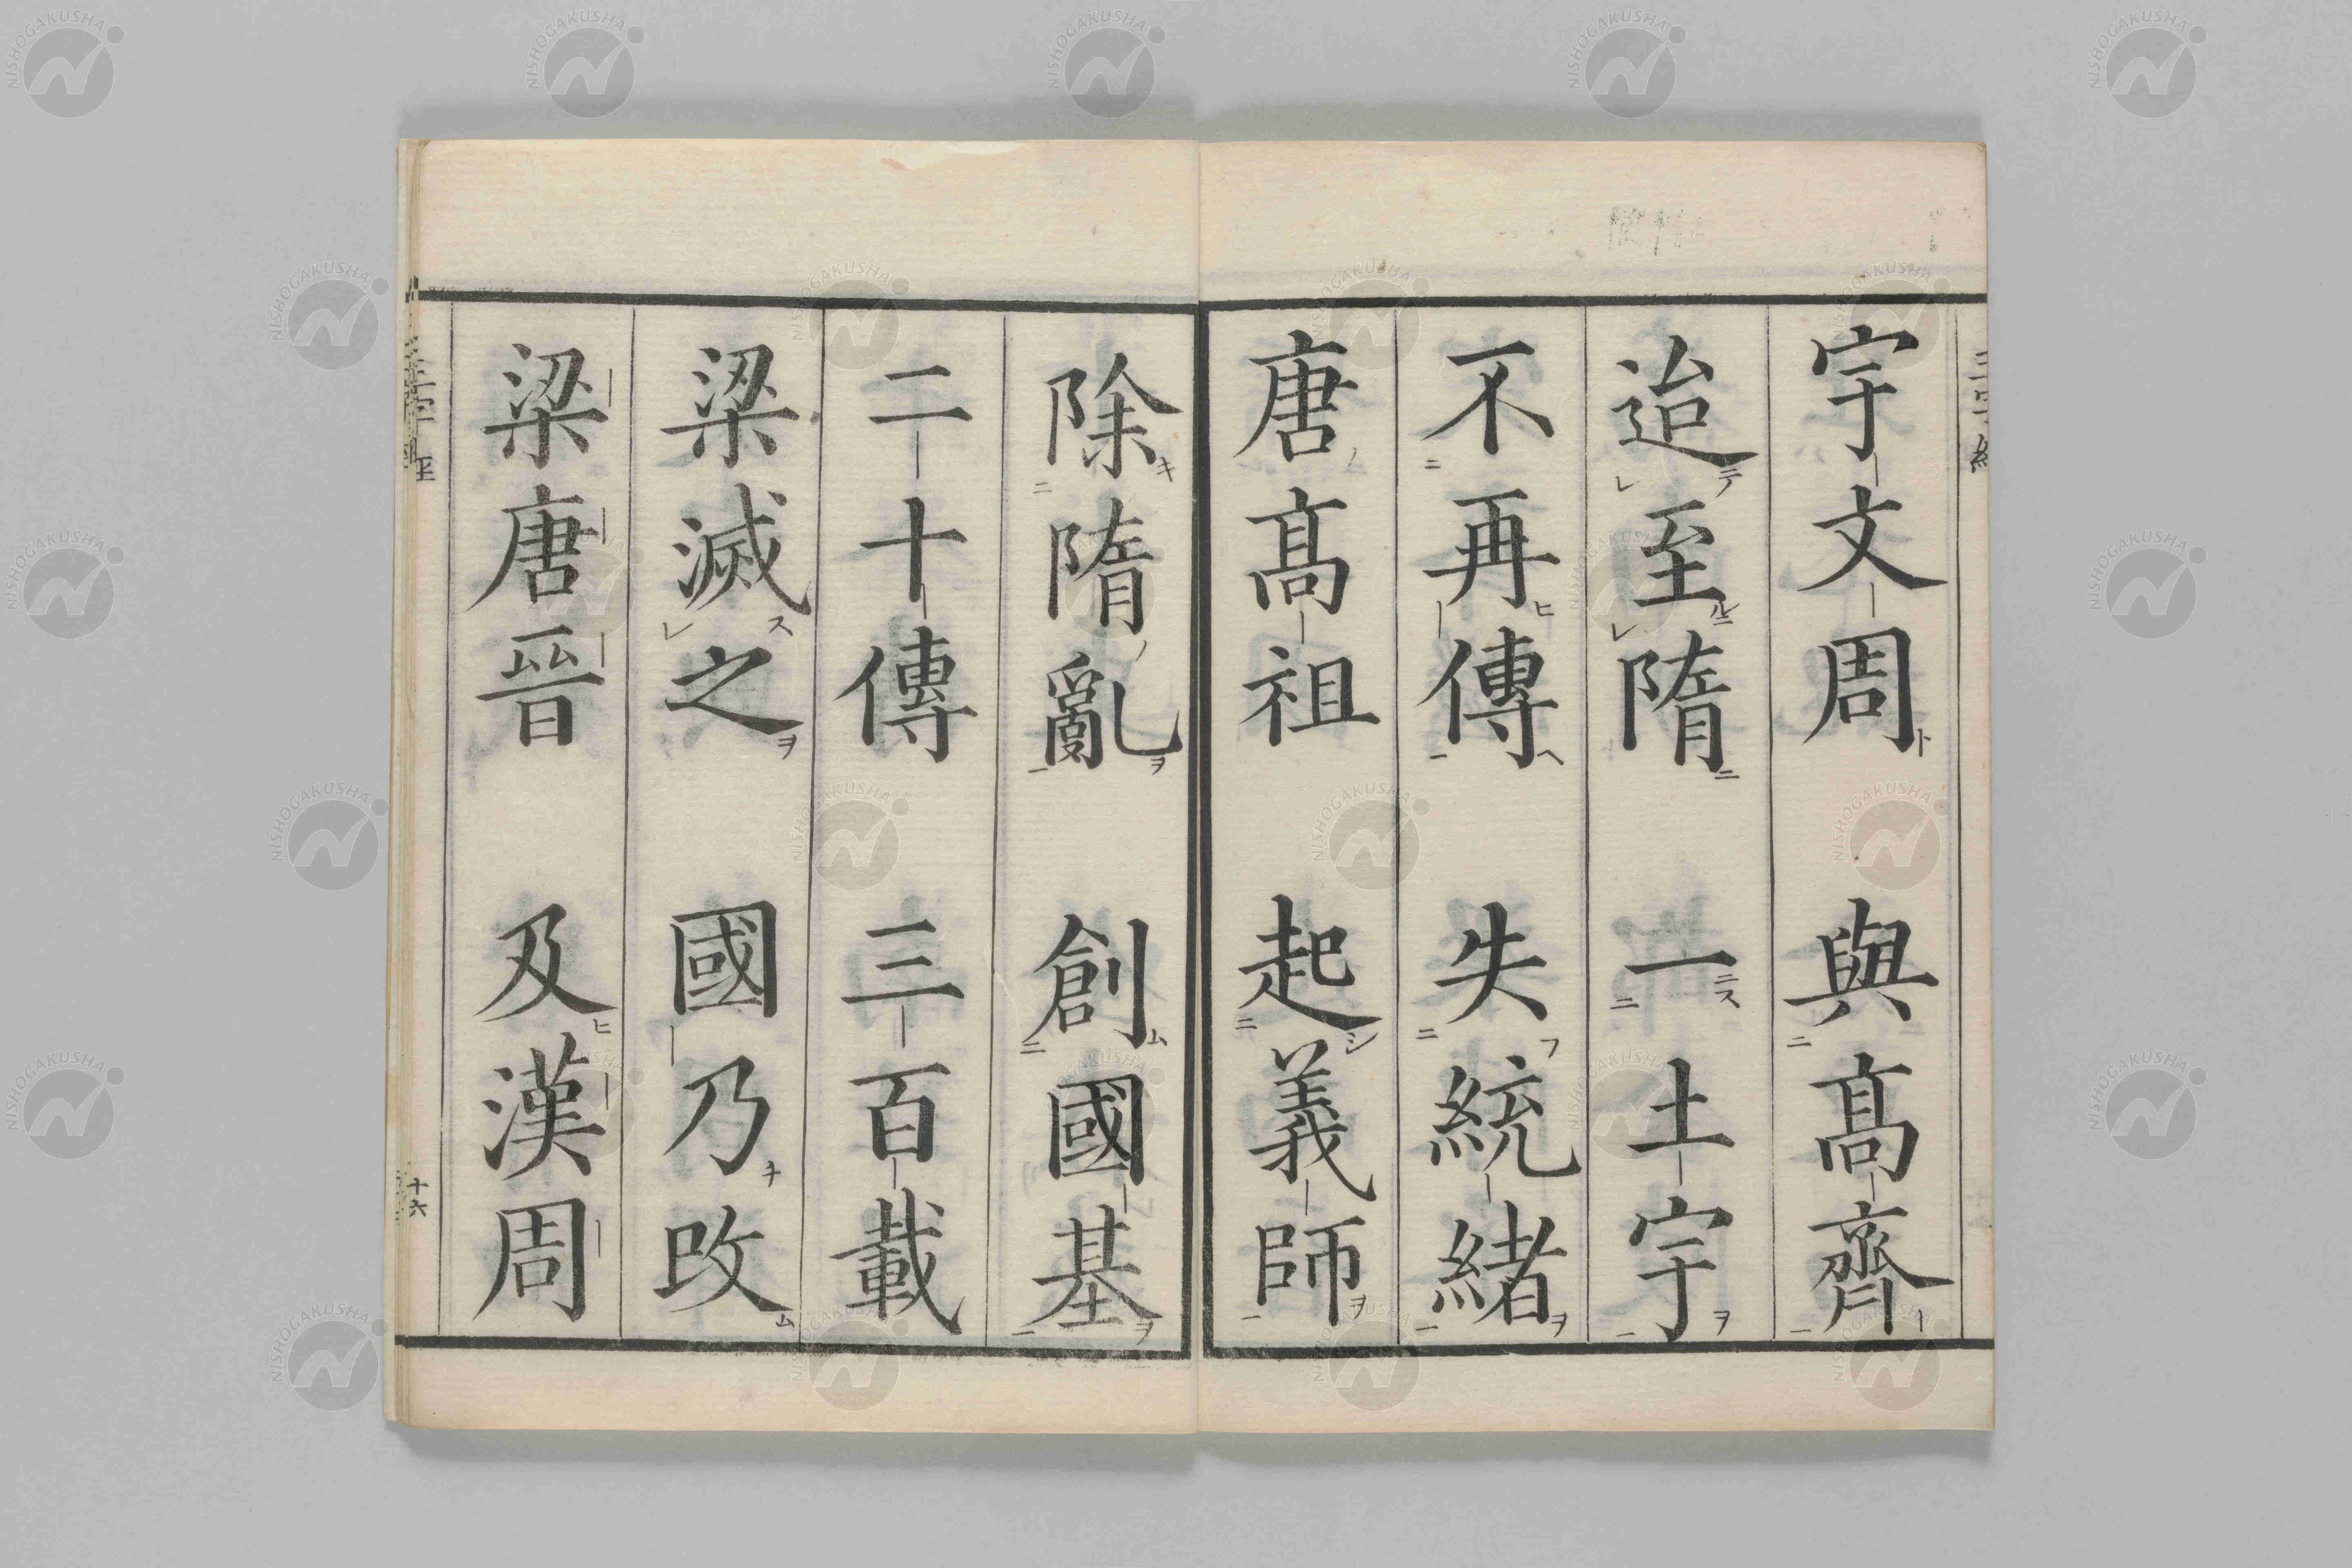 宇文周 與髙齊
迨至隋 一土宇
不再傳 失統緒
唐髙祖 起義師
除隋亂 創國基
二十傳 三百載
梁滅之 國乃改
梁唐晉 及漢周
三字經
十六
NISHOGAKUSHA